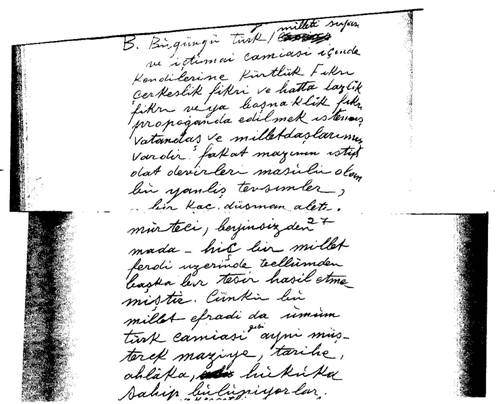 milleti siyasi
B. Bugünkü türk
ve içtimai camiasi içinde
kendilerine Kürtlük fikri
çerkeslik fikri ve hatta lazlik
fikri veya boşnaklik fikri
propoganda edilmek istenmiş
vatandaş ve milletdaşlarımız
vardır fakat mazinin istip
dat devirleri masulü olan
bu yanlış tevsimler,
bir kaç düşman aleti
mürteci, beyinsizden 27
mada - hiç bir millet
ferdi üzerinde teellümden
başka bir tesir hasil etme
miştir. Çünkü bu
millet efradi da umum
türk camiasi gibi ayni müş-
terek maziye, tarihe,
ahlâka, hukuka
sahip bulunuyorlar.